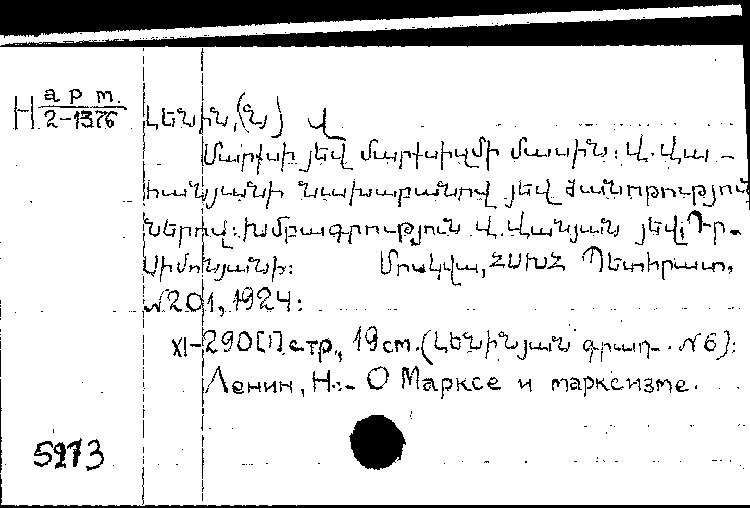 Н арт.
2-1376
ԼԵՆԻՆ, (Ն) Վ
Մարքսի յեվ մարքսիզմի մասին: Վ. Վա-
հանյանի նախաբանով յեվ ծանոթություն
ներով: Խմբագրություն Վ. Վանյան յեվ Դր.
Սիմոնյանի: Մոսկվա, ՀՍԽՀ Պետհրատ,
№201, 1924:
XI-290[1] стр., 19см. (Լենինյան գրադ. №6):
Ленин, Н.:- О Марксе и марксизме.
5273